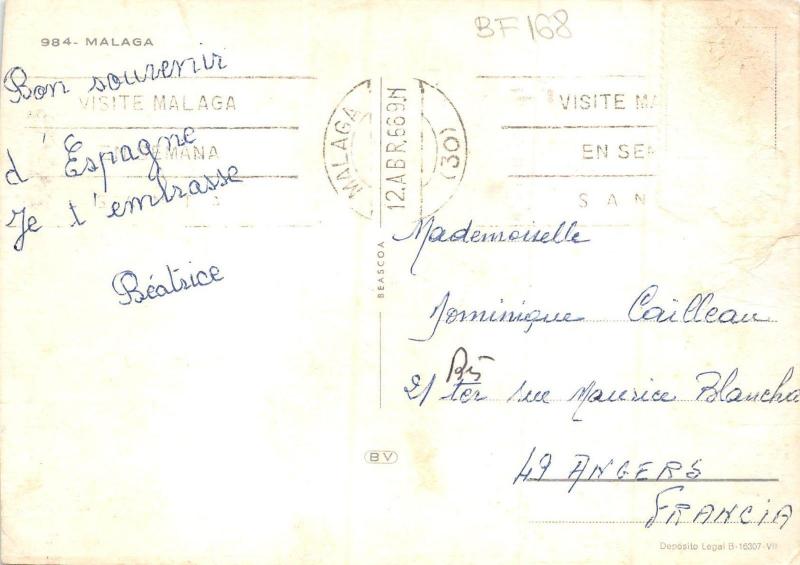 BF 168
984- MALAGA
Bon souvenir
d'Espagne
Je t'embrasse
Béatrice
VISITE MALAGA
EN SEMANA
S
MALAGA
12.ABR.68 9.N
(30)
VISITE MA
EN SE
S A N
BEASCOA
BV
Mademoiselle
Dominique Cailleau
Bis
21 ter rue Maurice Blancha
49 ANGERS
FRANCIA
Depósito Legal B-16307-VII